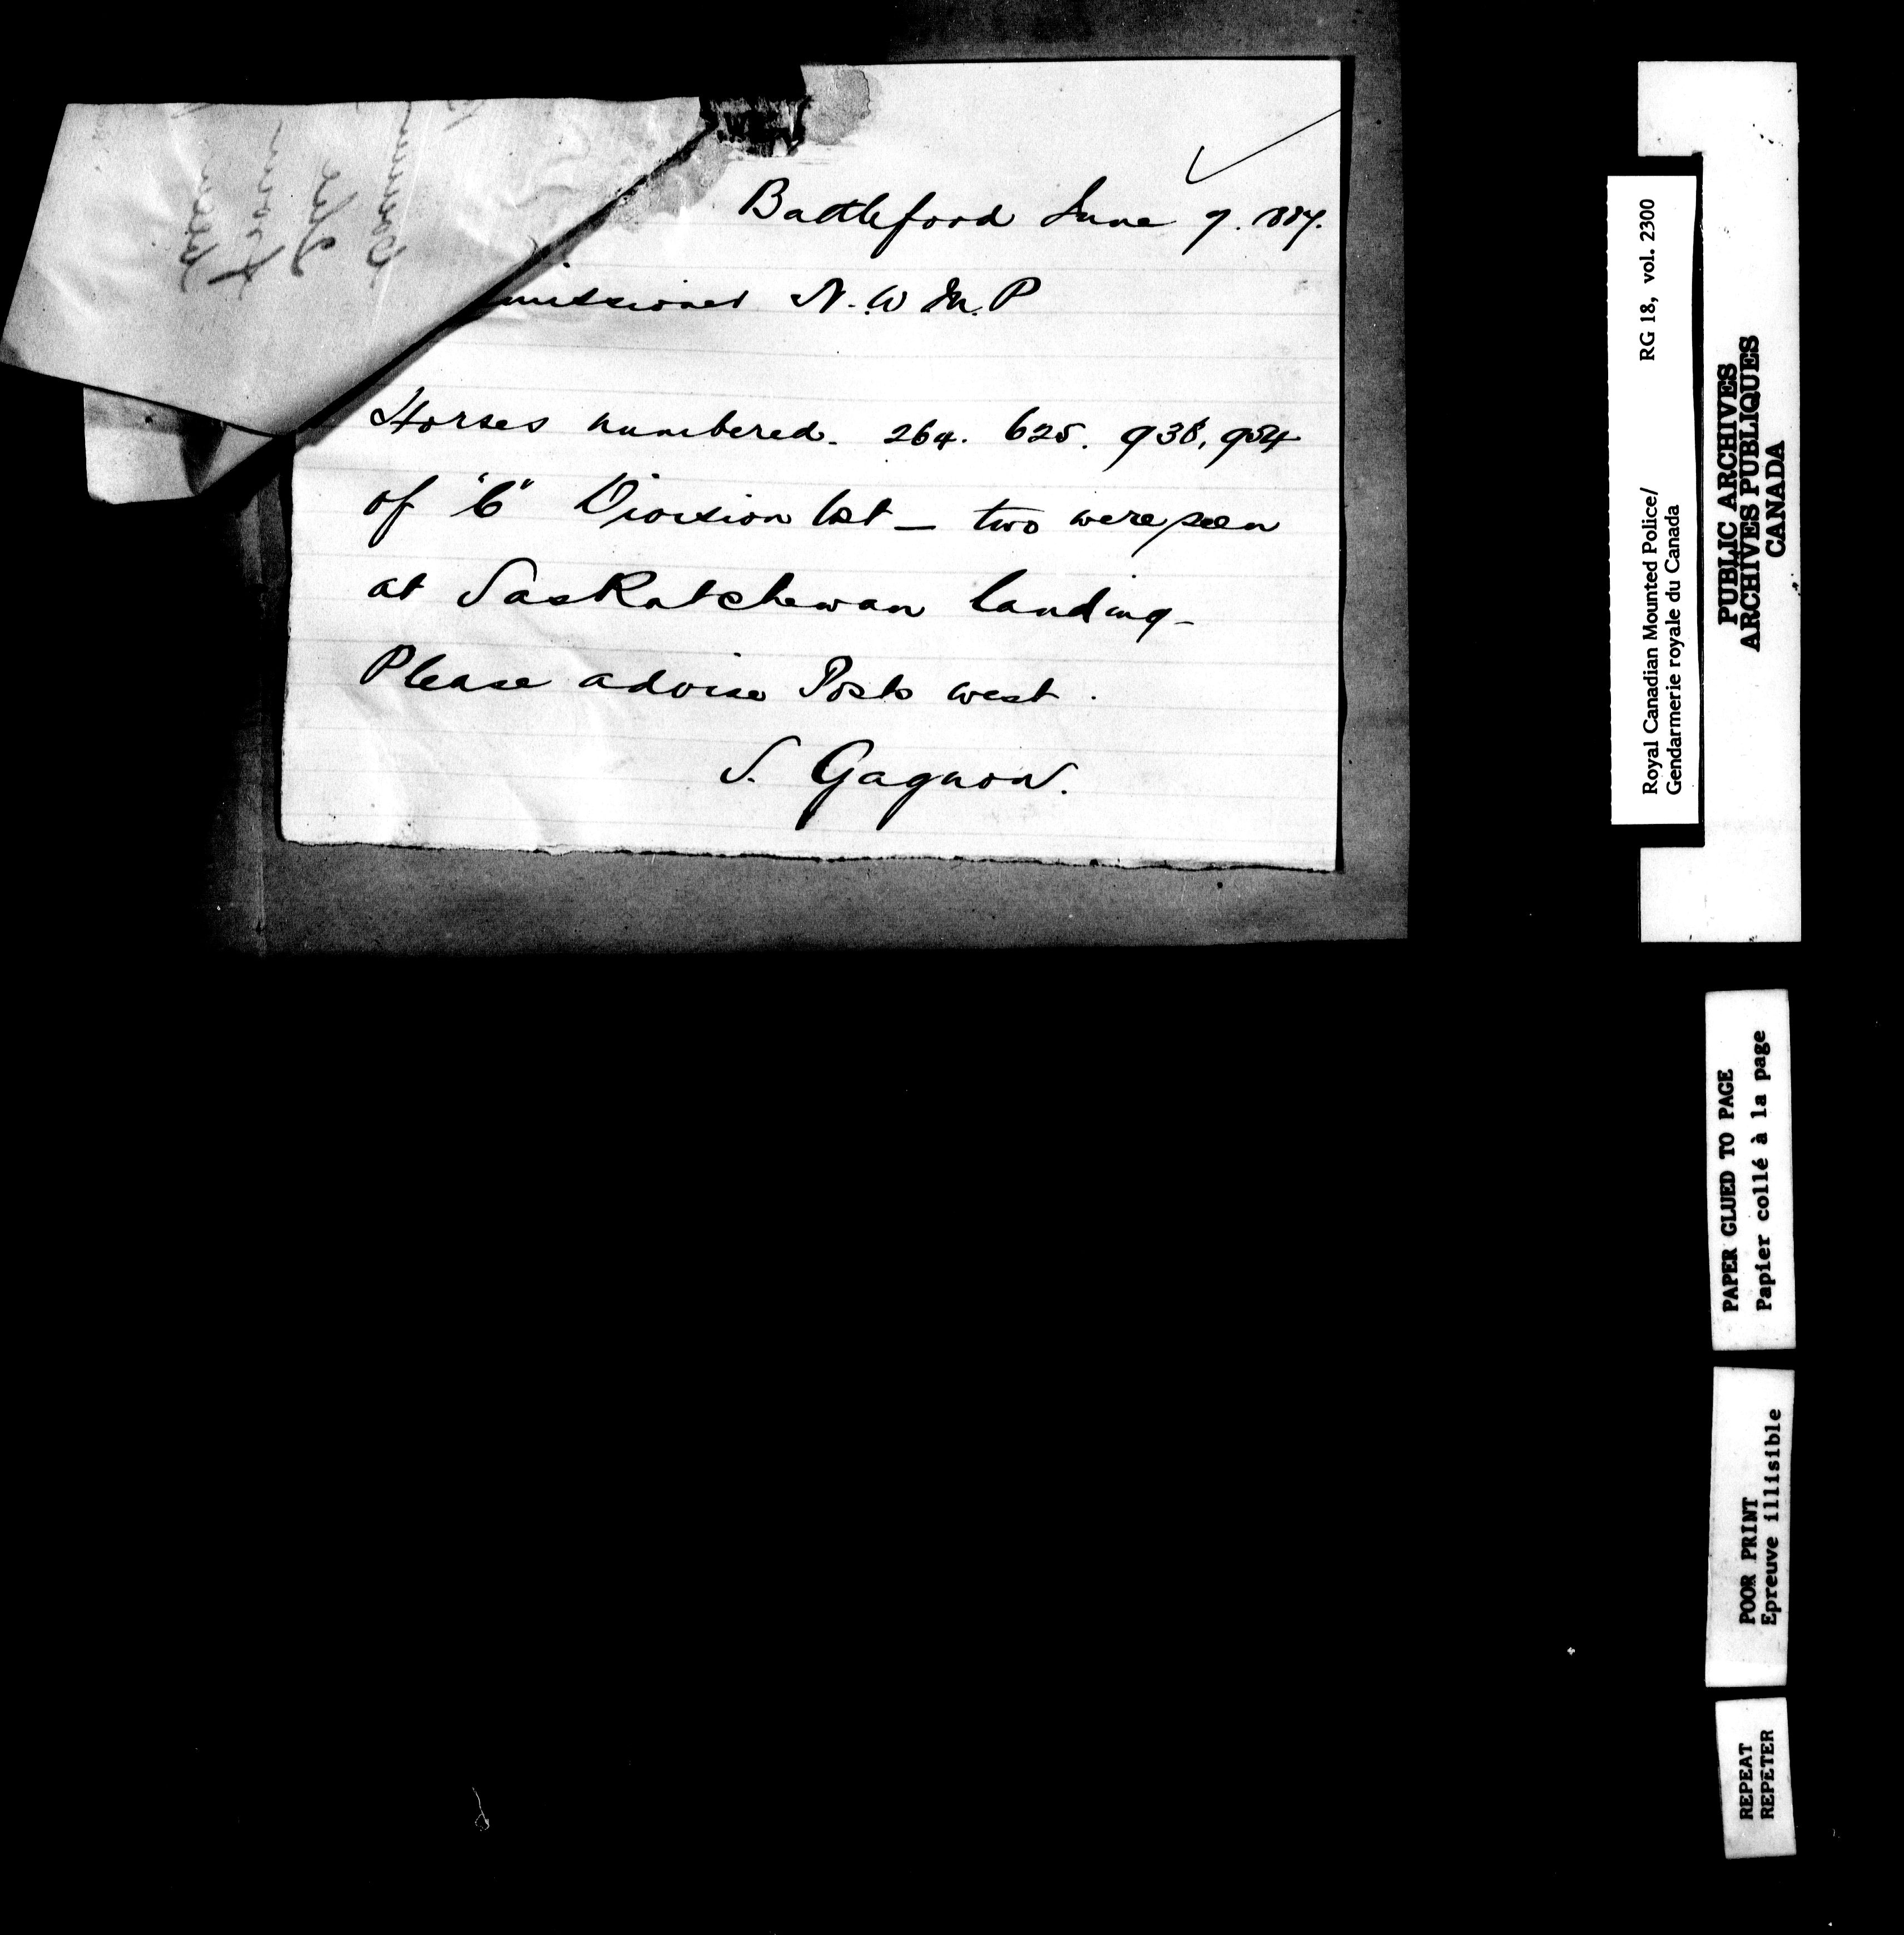 Battleford June 9. 1887.
missioner N.W.M.P
Horses numbered. 264. 625. 938, 954
of "C" Division lost — two were seen
at Saskatchewan landing —
Please advise Posts west.
S. Gagnon.
from
The
Royal Canadian Mounted Police/ RG 18, vol. 2300
Gendarmerie royale du Canada
PUBLIC ARCHIVES
ARCHIVES PUBLIQUES
CANADA
PAPER GLUED TO PAGE
Papier collé à la page
POOR PRINT
Epreuve illisible
REPEAT
REPÉTER